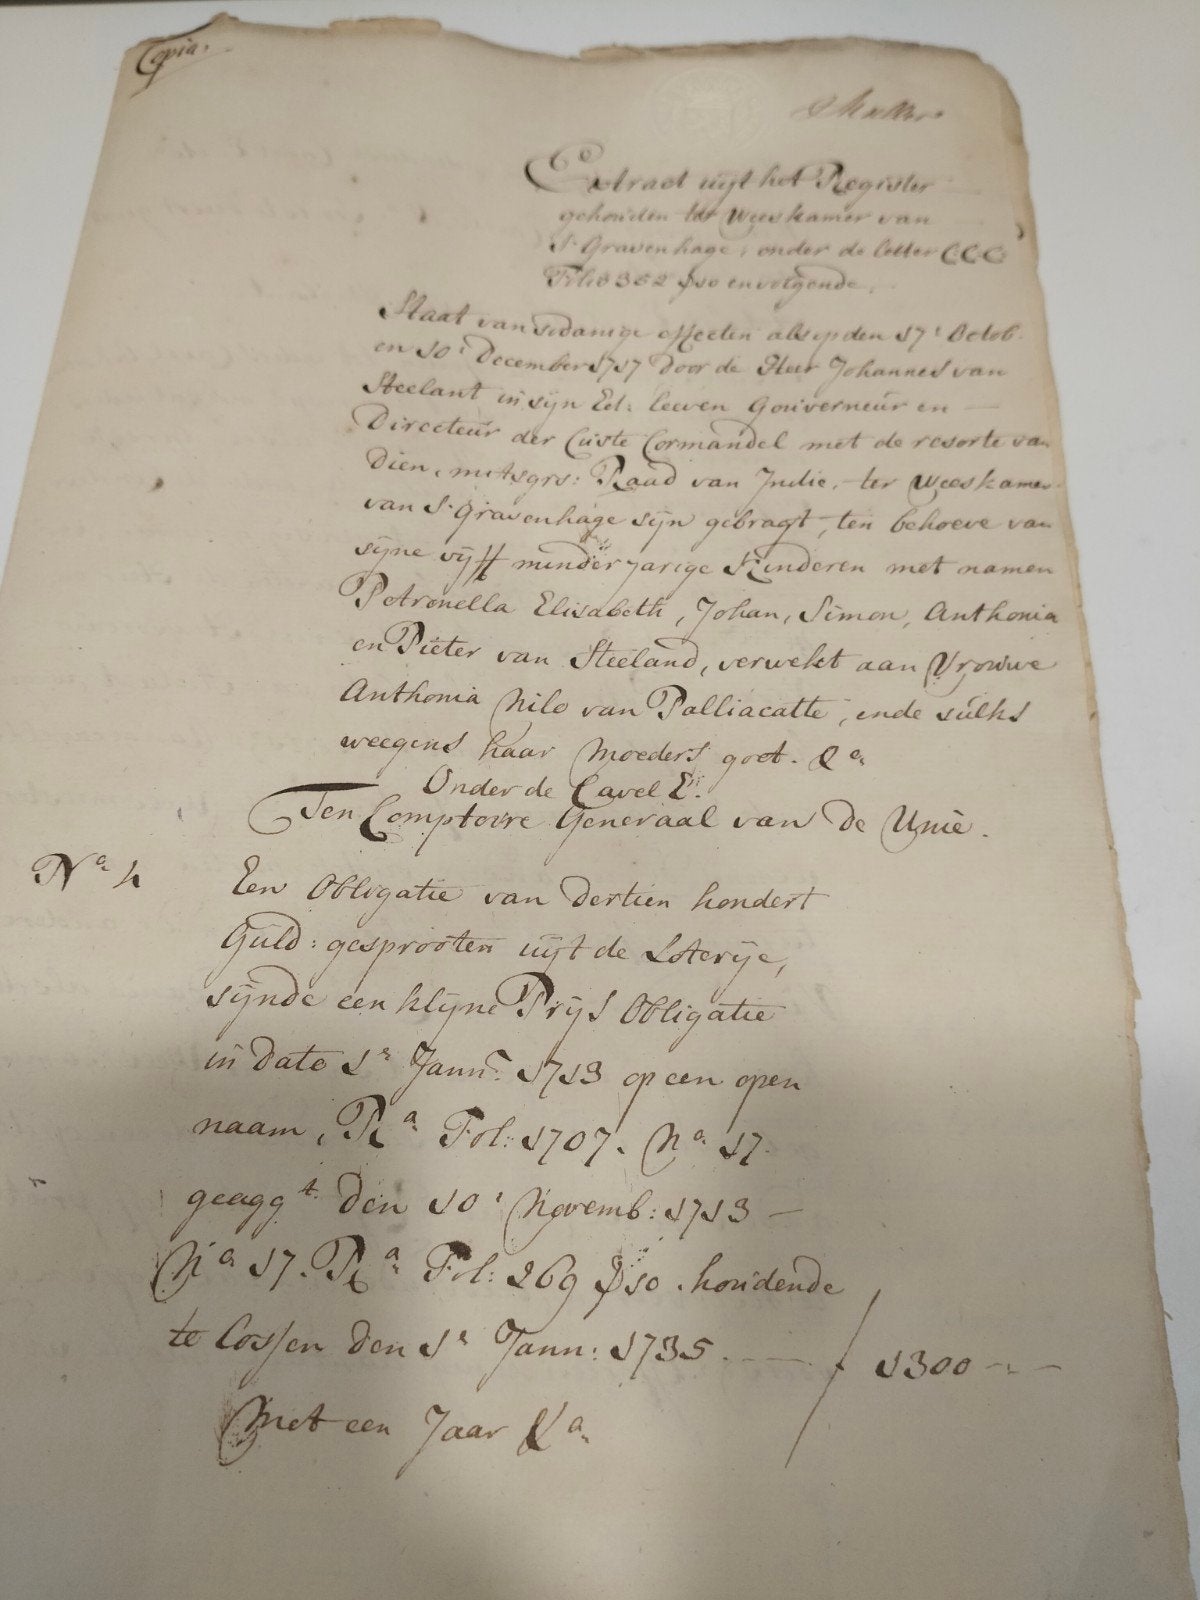 Copia.
Muller
Extract uijt het Register
gehouden ter Weeskamer van
S. Gravenhage, onder de letter C.C.C.
Folio 352 en volgende.
Staat van sodanige effecten als op den 17e Octob.
en 10e December 1717 door de Heer Johannes van
Steelant in sijn Ed: leeven Gouverneur en
Directeur der Custe Cormandel met de resorte van
Dien, mitsgrs: Raad van Indie, ter Weeskamer
van S. Gravenhage sijn gebragt, ten behoeve van
sijne vijff minderjarige Kinderen met namen
Petronella Elisabeth, Johan, Simon, Anthonia
en Pieter van Steeland, verwekt aan Vrouwe
Anthonia Nilo van Palliacatte, ende sulks
weegens haar Moeders goet. &a.
Onder de Cavel E.
Ten Comptoire Generaal van de Unie.
No. 4
Een Obligatie van dertien hondert
Guld: gesprooten uijt de Loterije,
sijnde een klijne Prijs Obligatie
in dato 1e Jann: 1713 op een open
naam, Ra Fol: 1707. No. 17
geaggt. den 10e Novemb: 1713 —
No 17. Ra Fol: 269 houdende
te Lossen den 1e Jann: 1735 ---- 1300 - -
Met een Jaar &a.